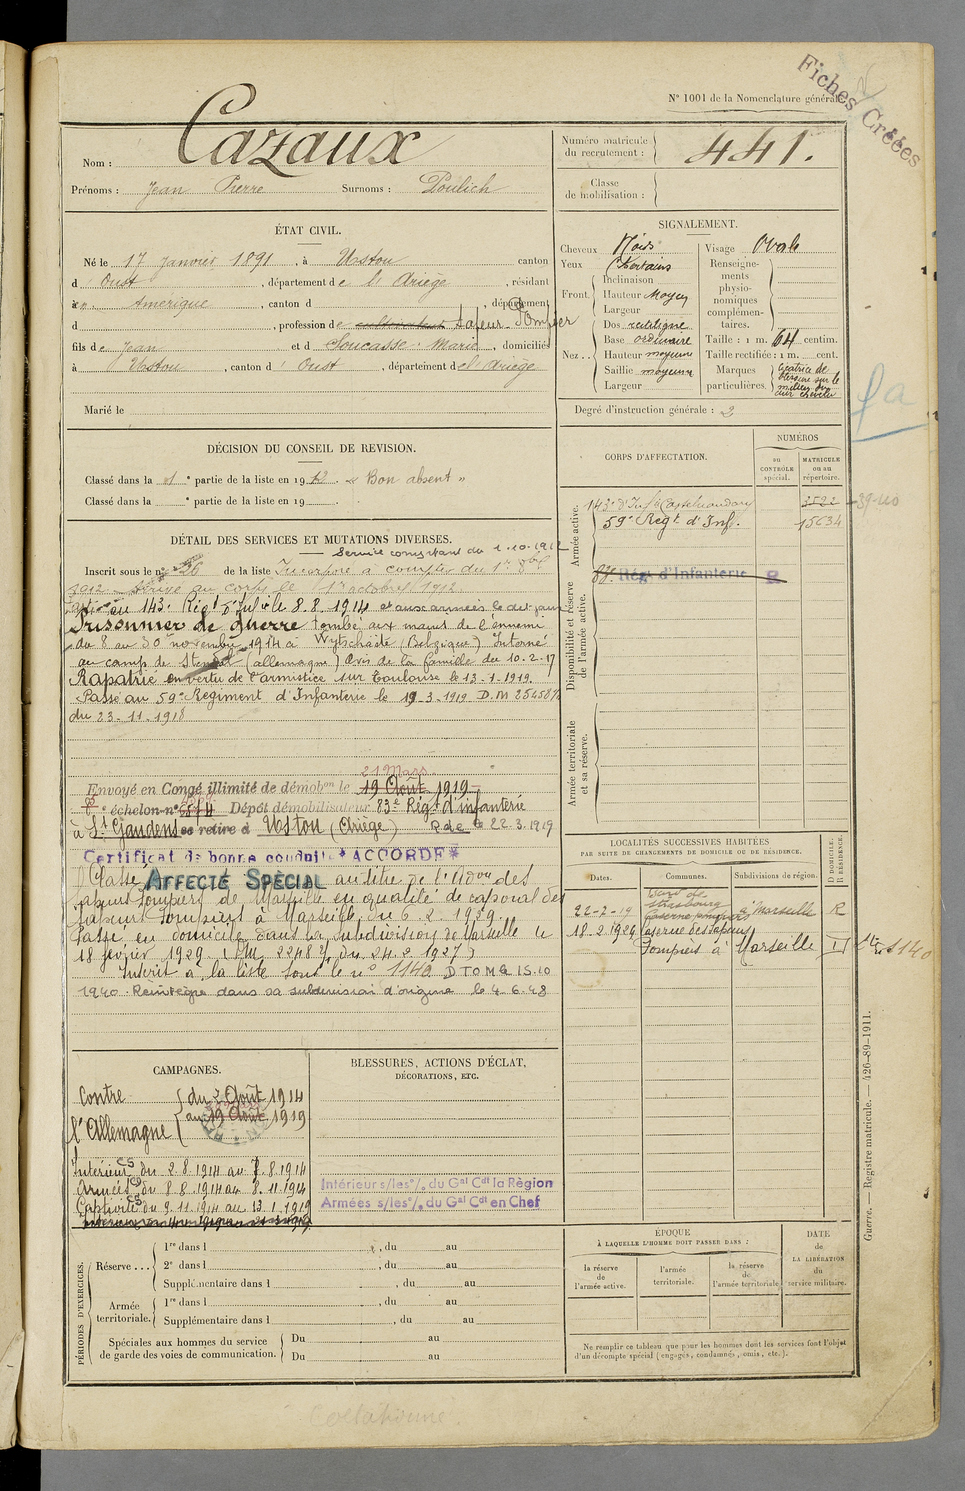 Fiches Créées
N° 1001 de la Nomenclature générale.
Nom : Cazaux
Prénoms : Jean Pierre Surnoms : Poulich
Numéro matricule du recrutement : 441.
Classe de mobilisation :
ÉTAT CIVIL.
Né le 17 Janvier 1891, à Ustou canton
d' Oust, département de l'Ariège, résidant
à Amérique, canton d , département
d , profession de cultivateur Sapeur-Pompier
fils de Jean et d Soucasse Marie, domiciliés
à Ustou, canton d' Oust, département de l'Ariège
Marié le
SIGNALEMENT.
Cheveux Noirs
Yeux Chatains
Front. Inclinaison
Hauteur Moyen
Largeur
Nez... Dos rectiligne
Base ordinaire
Hauteur moyenne
Saillie moyenne
Largeur
Visage Ovale
Renseignements physionomiques complémentaires.
Taille : 1 m. 64 centim.
Taille rectifiée : 1 m. cent.
Marques particulières. Cicatrice de sur le milieu du cuir chevelu
Degré d'instruction générale : 2
DÉCISION DU CONSEIL DE REVISION.
Classé dans la 1 e partie de la liste en 1912. « Bon absent »
Classé dans la e partie de la liste en 19 .
DÉTAIL DES SERVICES ET MUTATIONS DIVERSES.
Service comptant du 1-10-1912
Inscrit sous le n° 36 de la liste Incorporé à compter du 1er 8bre
1912. Arrivé au corps le 1er octobre 1912
au 143e Régt d'Infie le 8.8.1914 et aux armées le dit jour
Prisonnier de guerre tombé aux mains de l'ennemi
du 8 au 30 novembre 1914 à Wytschaete (Belgique) Interné
au camp de Stendal (Allemagne) Avis de la famille du 10-2-17
Rapatrié en vertu de l'armistice sur Toulouse le 13-1-1919.
Passé au 59e Régiment d'Infanterie le 19-3-1919 D.M 25458
du 23-11-1918
21 Mars
Envoyé en Congé illimité de démobon le 19 Août 1919.
e échelon n° Dépôt démobilisateur 83e Régt d'infanterie
à St Gaudens se retire à Ustou (Ariège) P.de le 22.3.1919
Certificat de bonne conduite * ACCORDÉ *
Classé AFFECTÉ SPÉCIAL au titre de l' des
Sapeurs Pompiers de Marseille en qualité de caporal des
Sapeurs Pompiers à Marseille, du 6.2.1929.
Passé en domicile dans la subdivision de Marseille le
18 février 1929 (DM 2248 du 24.2.1927)
Inscrit à la liste sous le n° 1140 DTOMA 15.10
1940. Réintégré dans sa subdivision d'origine le 4.6.48
CORPS D'AFFECTATION.
NUMÉROS
au CONTRÔLE spécial.
MATRICULE ou au répertoire.
Armée active.
143e d'Infie Castelnaudary 3522
59e Régt d'Inf. 15634
Disponibilité et réserve de l'armée active.
83e Régt d'Infanterie
Armée territoriale et sa réserve.
LOCALITÉS SUCCESSIVES HABITÉES
PAR SUITE DE CHANGEMENTS DE DOMICILE OU DE RÉSIDENCE.
Dates. Communes. Subdivisions de région. D DOMICILE. R RÉSIDENCE.
22-2-19 Strasbourg Caserne pompiers à Marseille R
18.2.1929 Caserne des Sapeurs
Pompiers à Marseille D
1140
CAMPAGNES.
Contre l'Allemagne
du 2 Août 1914
au 19 Août 1919
Intérieur CS du 2.8.1914 au 7.8.1914
Armées CD du 8.8.1914 au 8.11.1914
Captivité CS du 9.11.1914 au 13.1.1919
BLESSURES, ACTIONS D'ÉCLAT,
DÉCORATIONS, ETC.
Intérieur s/les °/. du Gal Cdt la Région
Armées s/les °/. du Gal Cdt en Chef
PÉRIODES D'EXERCICES.
Réserve ... 1re dans l , du au
2e dans l , du au
Supplémentaire dans l , du au
Armée territoriale. 1re dans l , du au
Supplémentaire dans l , du au
Spéciales aux hommes du service de garde des voies de communication. Du au
Du au
ÉPOQUE
À LAQUELLE L'HOMME DOIT PASSER DANS :
la réserve de l'armée active.
l'armée territoriale.
la réserve de l'armée territoriale.
DATE de LA LIBÉRATION du service militaire.
Ne remplir ce tableau que pour les hommes dont les services font l'objet
d'un décompte spécial (engagés, condamnés, omis, etc.).
Guerre. — Registre matricule. — 426-89-1911.
Collationné.